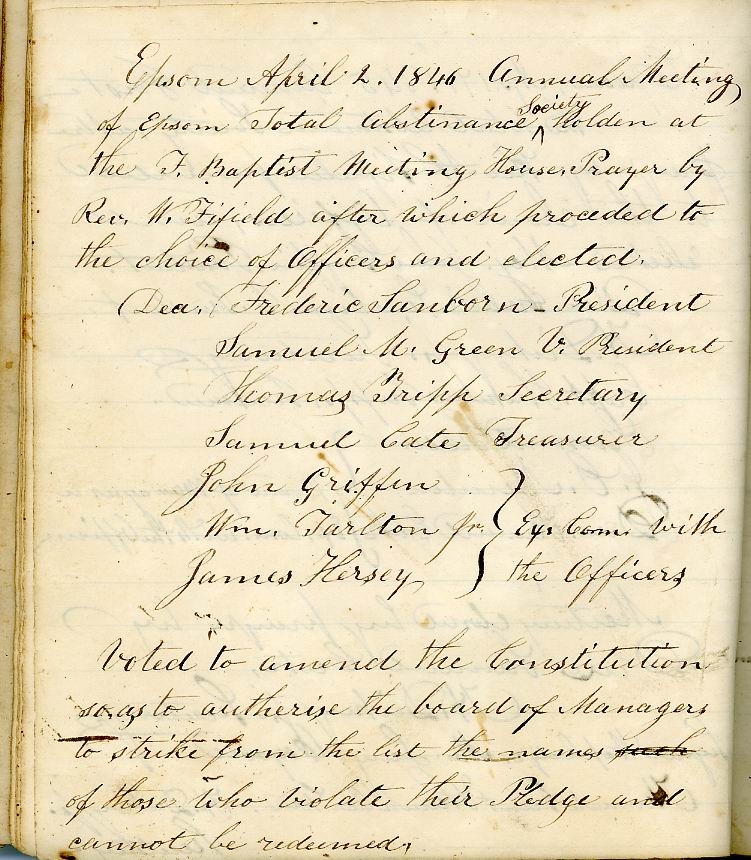 Epsom April 2. 1846 Annual Meeting
of Epsom Total Abstinance Society Holden at
the F. Baptist Meeting House. Prayer by
Rev. W. Fifield after which proceded to
the choice of Officers and elected.
Dea. Frederic Sanborn - President
Samuel M. Green V. President
Thomas Tripp Secretary
Samuel Cate Treasurer
John Griffin
Wm. Tarlton Jr. } Ex. Com. with
James Hersey the Officers
Voted to amend the Constitution
so as to autherise the board of Managers
to strike from the list the names such
of those who violate their Pledge and
cannot be redeemed.